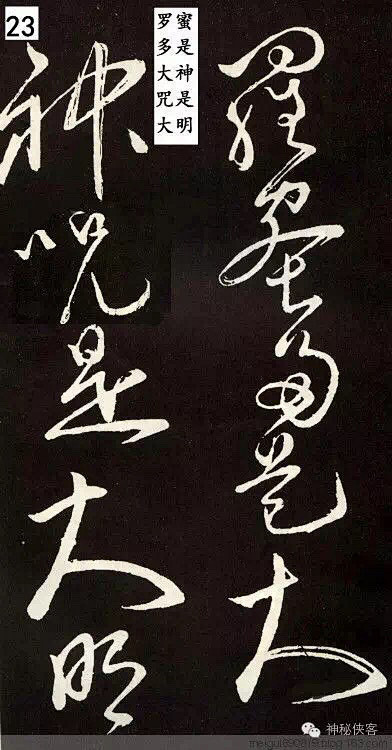 23
罗蜜
多是
大神
咒是
大明
羅蜜多是大
神咒是大明
神秘侠客